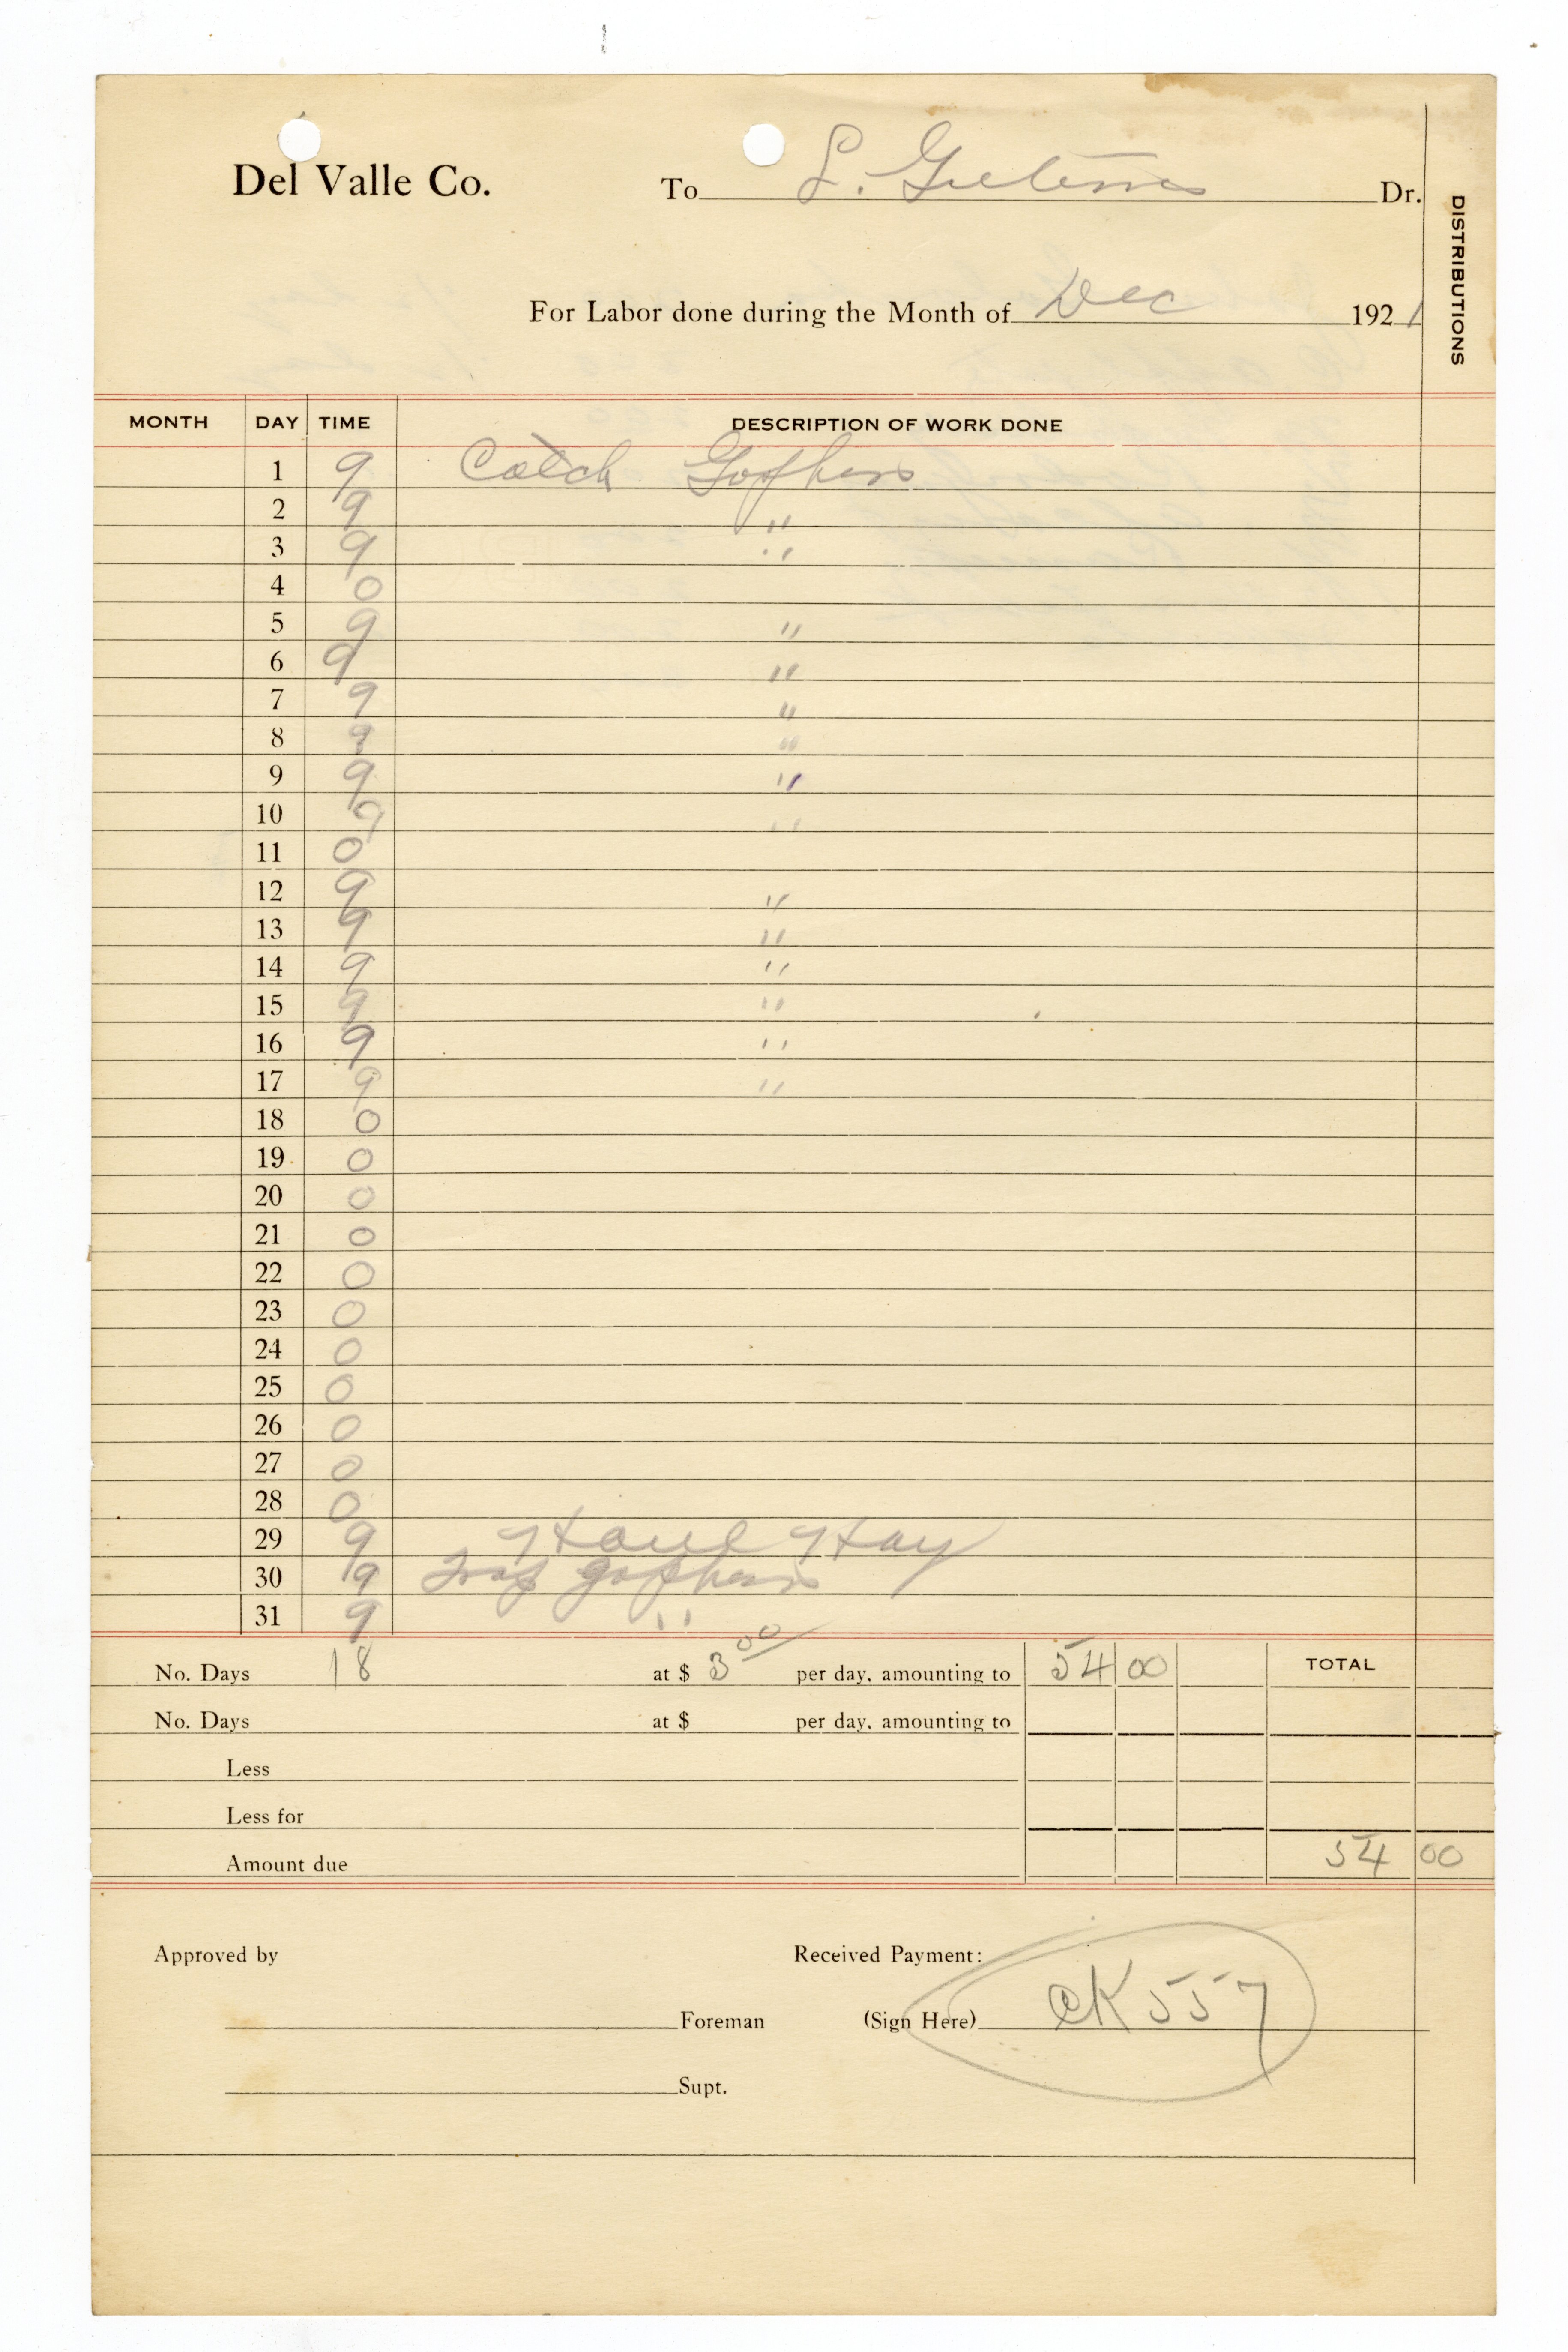 Del Valle Co. To L. Dr.
For Labor done during the Month of Dec 1921
DISTRIBUTIONS
MONTH DAY TIME DESCRIPTION OF WORK DONE
1 9 Catch Gophers
2 9 "
3 9 "
4 0
5 9 "
6 9 "
7 9 "
8 9 "
9 9 "
10 9 "
11 0
12 9 "
13 9 "
14 9 "
15 9 "
16 9 "
17 9 "
18 0
19 0
20 0
21 0
22 0
23 0
24 0
25 0
26 0
27 0
28 0
29 9 Haul Hay
30 9 Trap gophers
31 9 "
No. Days 18 at $ 3 00 per day, amounting to 54 00 TOTAL
No. Days at $ per day, amounting to
Less
Less for
Amount due 54 00
Approved by Received Payment:
Foreman (Sign Here) CK 557
Supt.